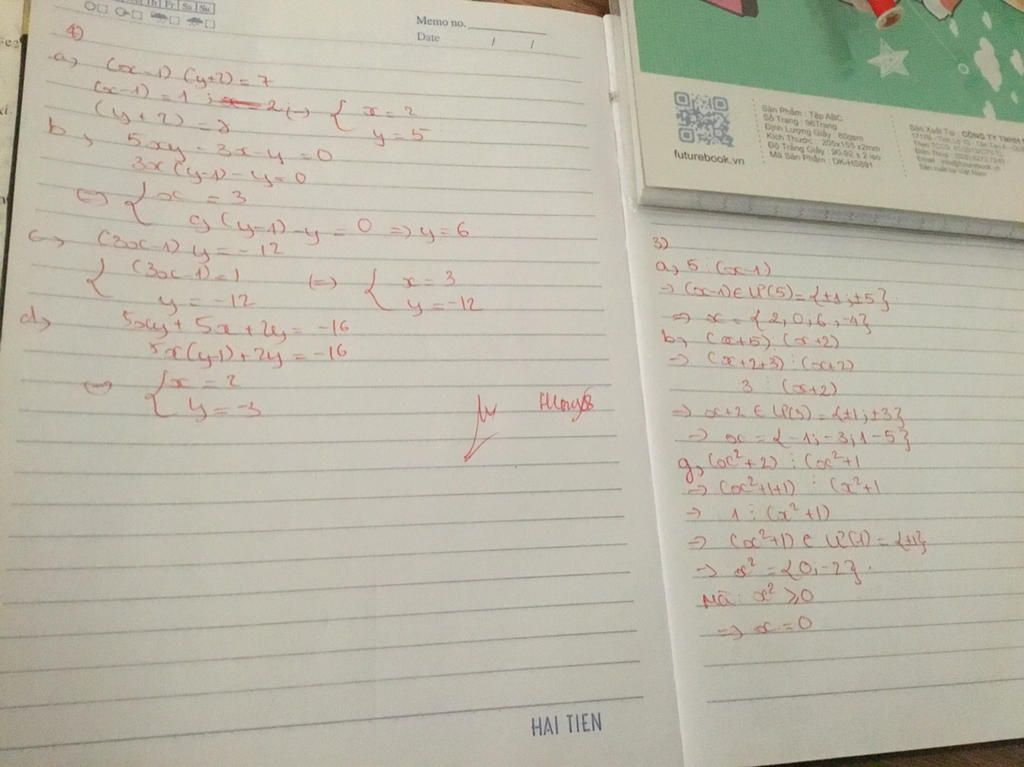 Th Fr Sa Su
Memo no.
Date / /
4)
a, (x-1) (y+2) = 7
(x-1) = 1 ; 2 (→ { x = 2
(y+2) = 7 y = 5
b, 5xy - 3x - y = 0
3x(y-1) - y = 0
⇔ { x = 3
9 (y-1) - y = 0 ⇒ y = 6
c, (3x-1) y = -12
{ (3x-1) = 1 (⇒ { x = 3
y = -12 y = -12
d, 5xy + 5x + 2y = -16
5x(y-1) + 2y = -16
⇔ { x = 2
y = -3
HAI TIEN
futurebook.vn
Sản Phẩm : Tệp ABC
Số Trang : 96Trang
Định Lượng Giấy : 80gsm
Kích Thước : 205x155 ±2mm
Độ Trắng Giấy : 90-92 ± 2 iso
Mã Sản Phẩm : DK-HS891
Sản Xuất Tại : CÔNG TY TNHH
3)
a, 5 ⋮ (x-1)
⇒ (x-1) ∈ Ư(5) = {±1; ±5}
⇒ x = {2, 0, 6, -4}
b, (x+5) ⋮ (x+2)
⇒ (x+2+3) ⋮ (x+2)
3 ⋮ (x+2)
⇒ x+2 ∈ Ư(3) = {±1; ±3}
⇒ x = {-1; -3; 1 -5}
g, (x²+2) ⋮ (x²+1
⇒ (x²+1+1) ⋮ (x²+1
⇒ 1 ⋮ (x²+1)
⇒ (x²+1) ∈ Ư(1) = {±1}
⇒ x² = {0, -2}.
Mà : x² ≥ 0
⇒ x = 0